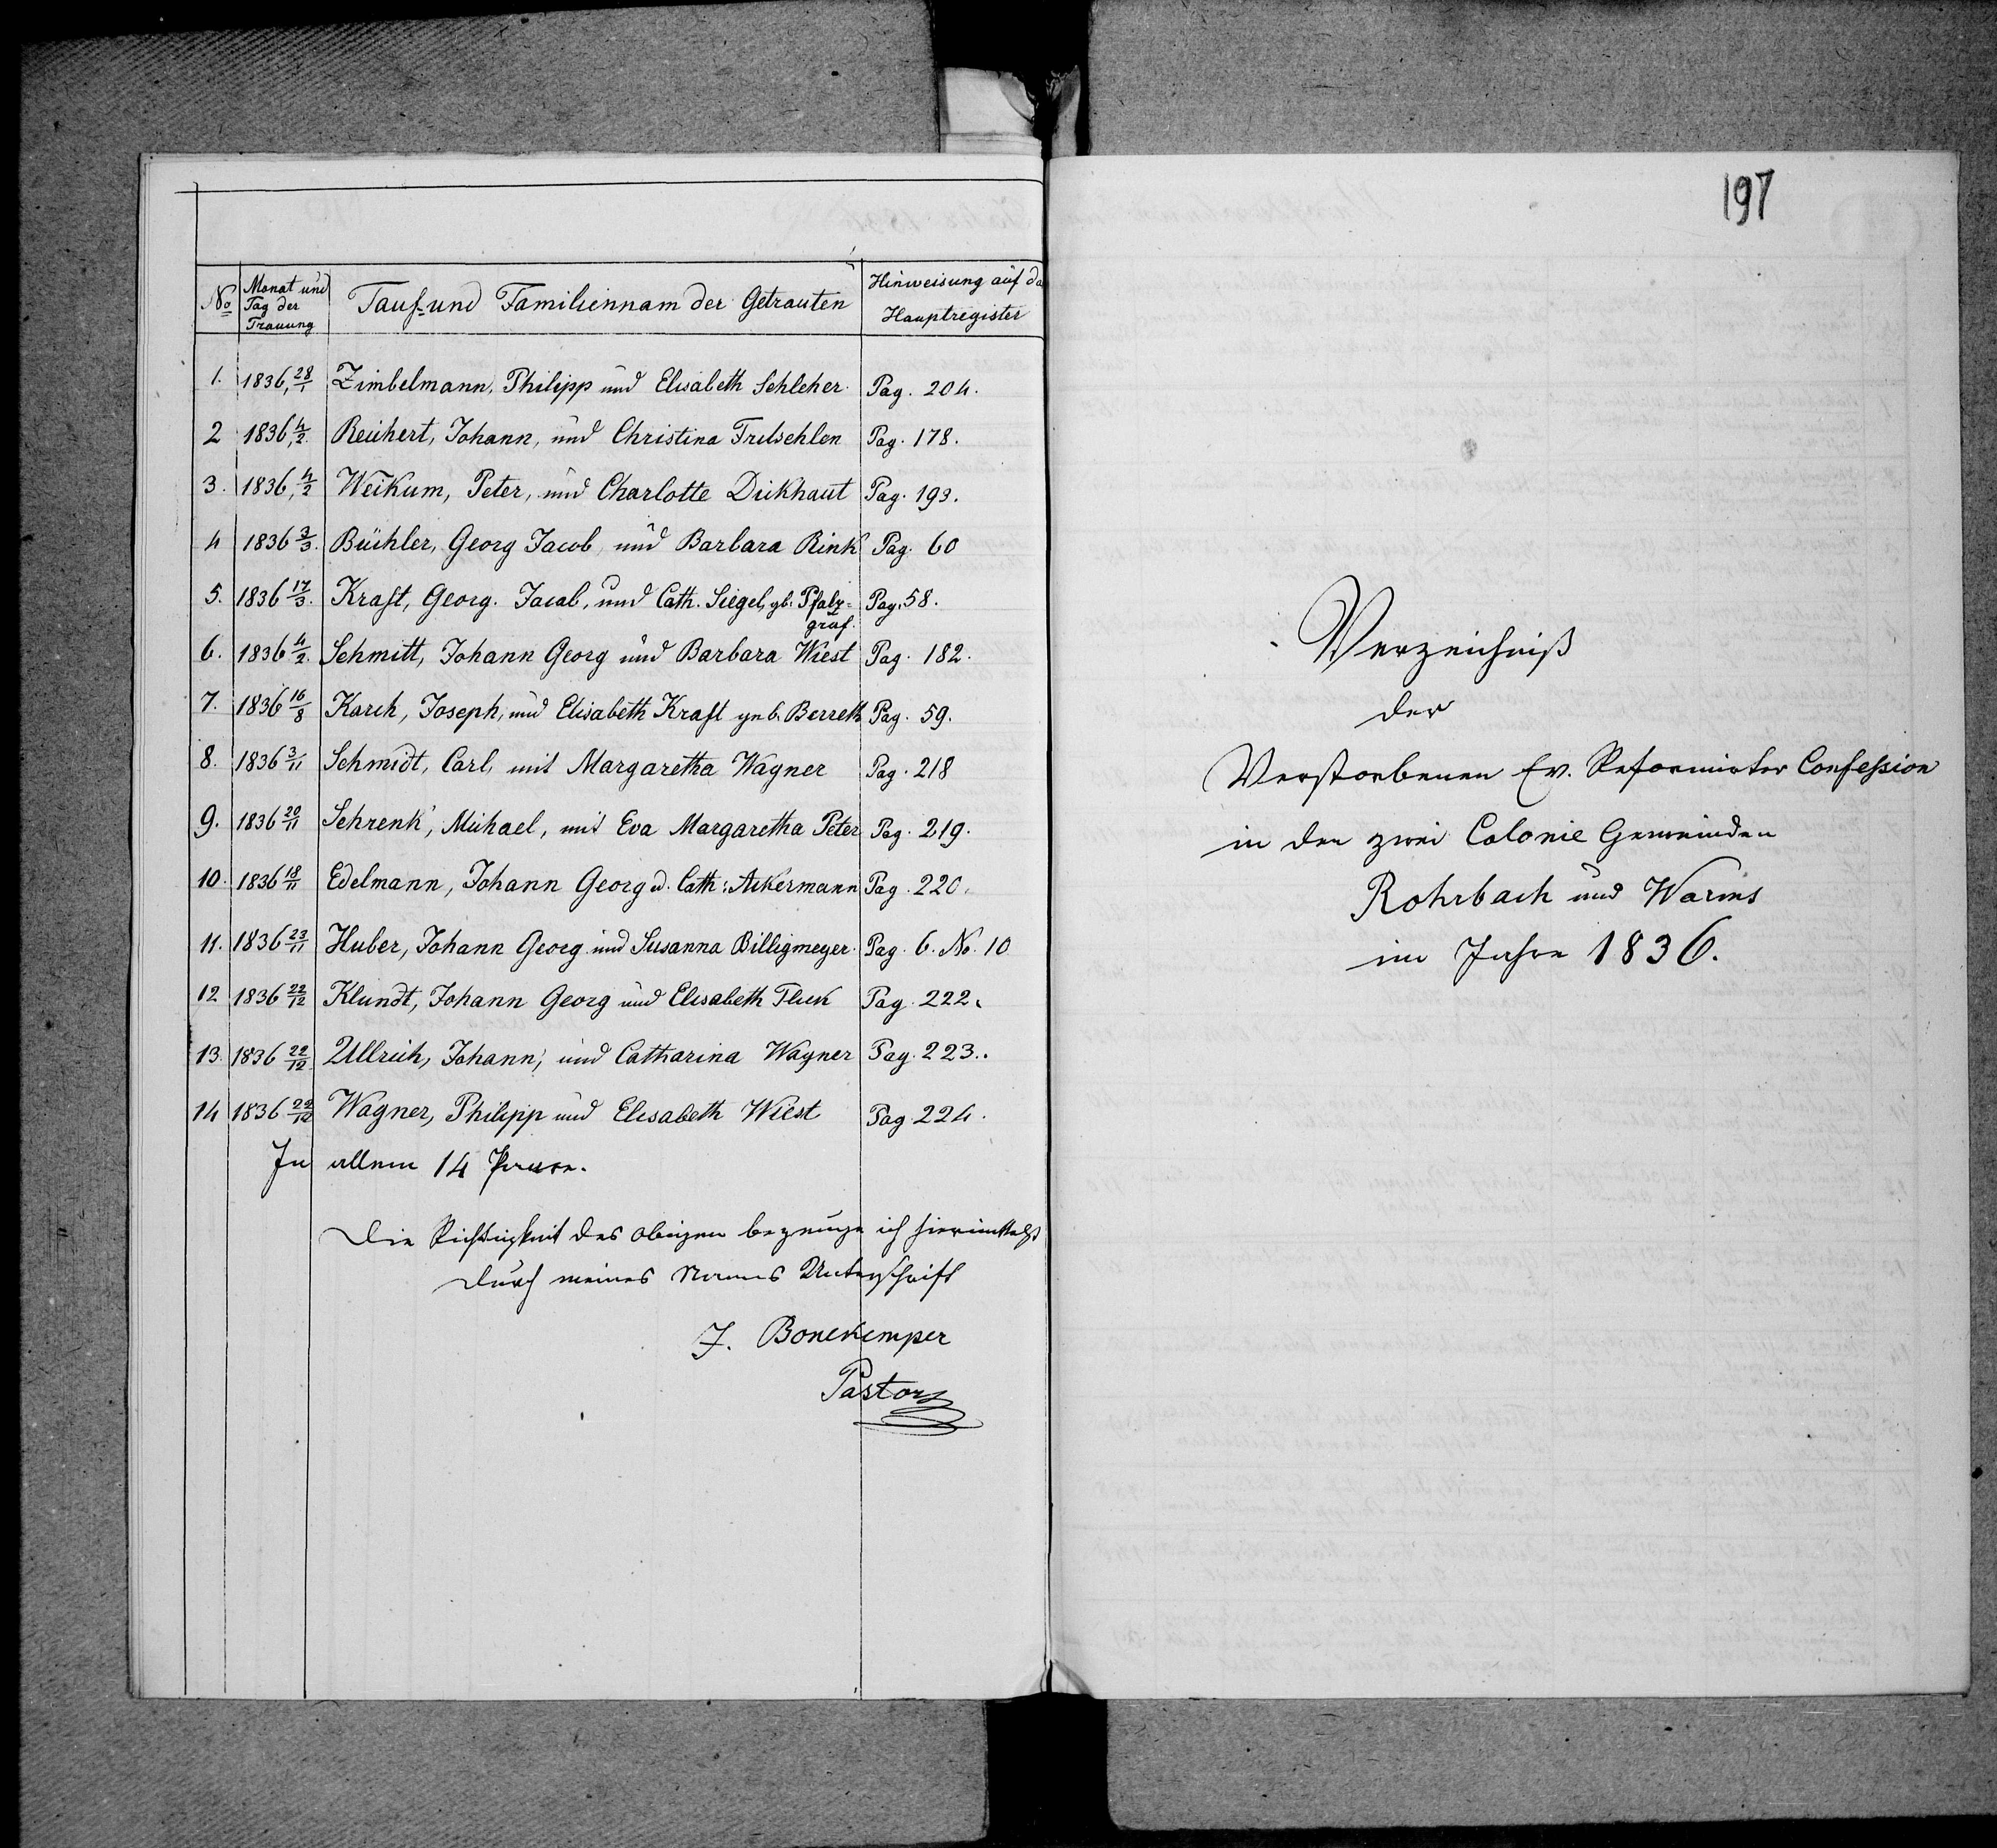 No Monat und Tag der Trauung Tauf- und Familiennam der Getrauten Hinweisung auf da Hauptregister
1. 1836, 28/1 Zimbelmann, Philipp und Elisabeth Schleher. Pag. 204.
2 1836, 4/2. Reichert, Johann, und Christina Tritschlen Pag. 178.
3. 1836, 4/2 Weikum, Peter, und Charlotte Dickhaut Pag. 193.
4 1836 3/3. Büchler, Georg Jacob und Barbara Rink Pag. 60
5. 1836 17/3. Kraft, Georg. Jacob, und Cath. Siegel, gb. Pfalz- Pag. 58.
graf.
6. 1836 4/2. Schmitt, Johann Georg und Barbara Wiest Pag. 182.
7. 1836 16/8 Karch, Joseph, und Elisabeth Kraft geb. Berreth Pag. 59.
8. 1836 3/11 Schmidt, Carl, mit Margaretha Wagner Pag. 218
9. 1836 20/11 Schrenk, Michael, mit Eva Margaretha Peter Pag. 219.
10. 1836 18/11 Edelmann, Johann Georg u. Cath: Ackermann Pag. 220.
11. 1836 23/11 Huber, Johann Georg und Susanna Billigmeyer. Pag. 6. No. 10
12 1836 22/12 Klundt, Johann Georg und Elisabeth Fluck Pag. 222.
13. 1836 22/12 Ullrich, Johann, und Catharina Wagner Pag. 223.
14 1836 22/12 Wagner, Philipp und Elisabeth Wiest Pag. 224.
In allem 14 Paare.
Die Richtigkeit des Obigen bezeuge ich hiermittelst
durch meines Namens Unterschrift
J. Bonekemper
Pastor
197
Verzeichniß
der
Verstorbenen Ev. Reformirter Confession
in den zwei Colonie Gemeinden
Rohrbach und Worms
im Jahre 1836.